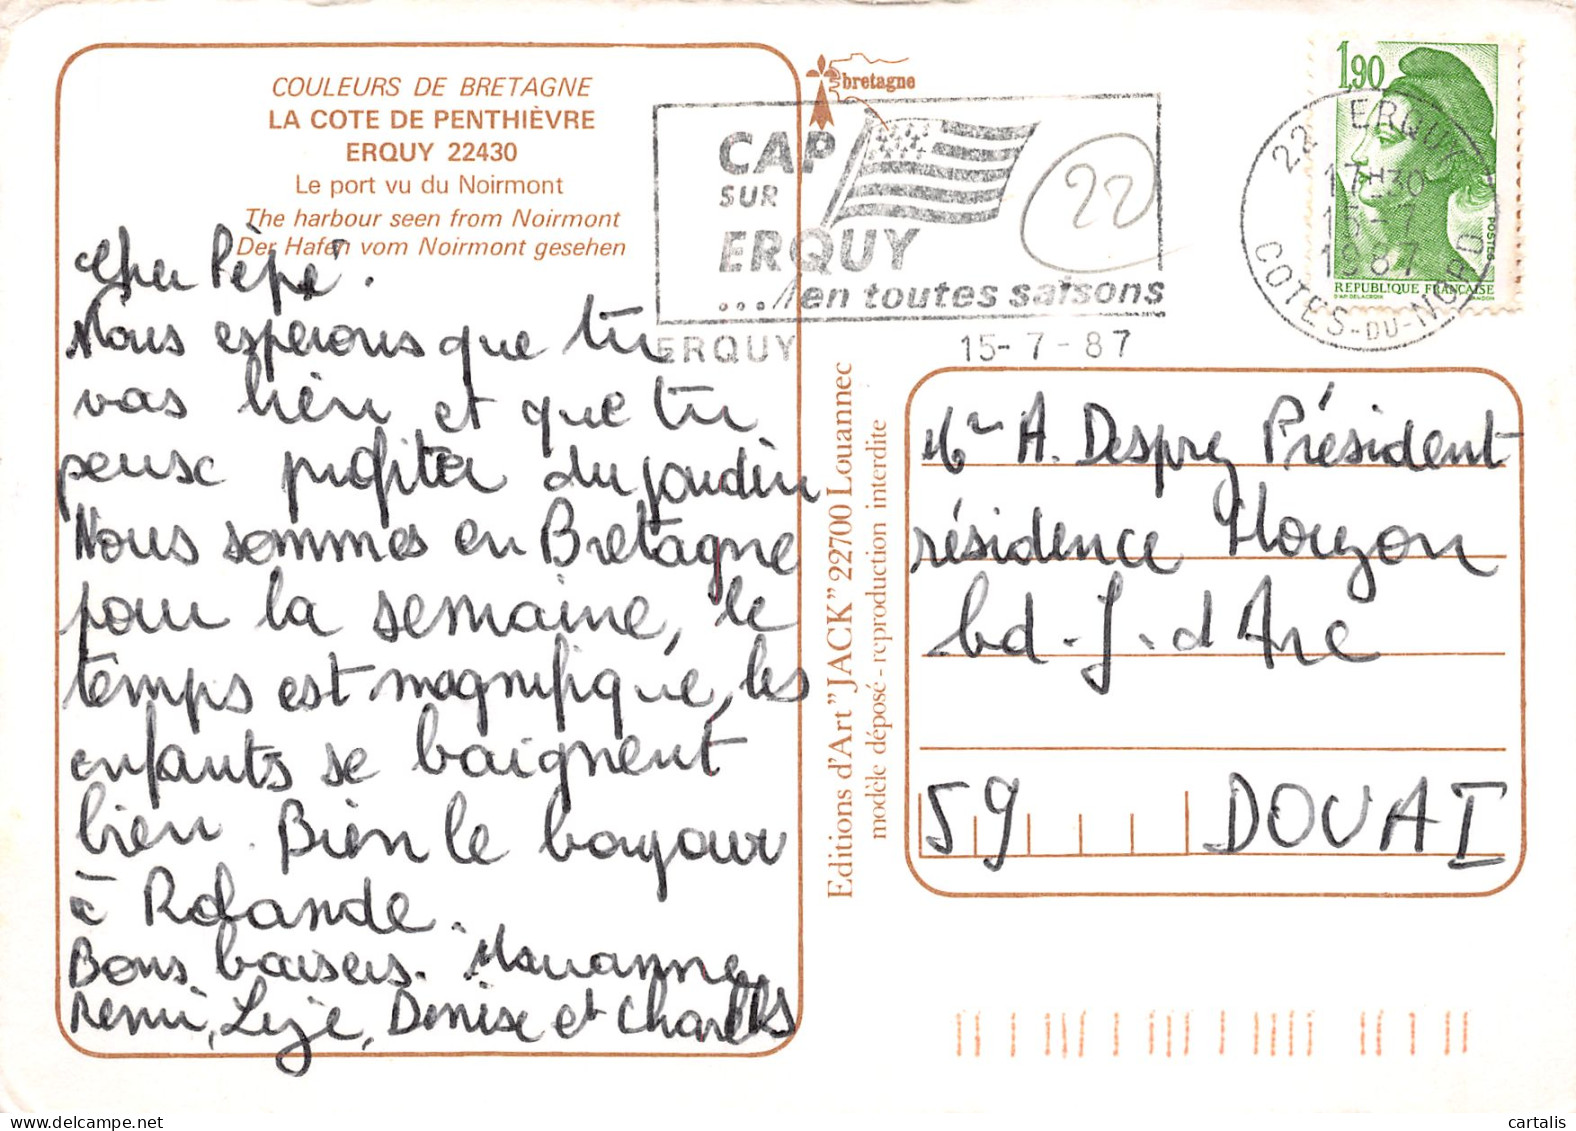 COULEURS DE BRETAGNE
LA COTE DE PENTHIÈVRE
ERQUY 22430
Le port vu du Noirmont
The harbour seen from Noirmont
Der Hafen vom Noirmont gesehen
Cher Pépé.
Nous esperons que tu
vas bien et que tu
peusc profiter du jardin
Nous sommes en Bretagne
pour la semaine, le
temps est magnifique, les
enfants se baignent
bien. Bien le bonjour
à Rolande.
Bons baisers. Marianne,
Remi, Denise et Charles
bretagne
CAP
SUR
ERQUY
... en toutes saisons
22
ERQUY 15-7-87
1,90
POSTES
REPUBLIQUE FRANÇAISE
D'APRES DELACROIX GANDON
22 ERQUY
17H30
15-7
1987
COTES-DU-NORD
Editions d'Art "JACK" 22700 Louannec
modèle déposé - reproduction interdite
Mr A. Desprez Président
résidence
bd. J. d'Arc
59 DOUAI
cartalis